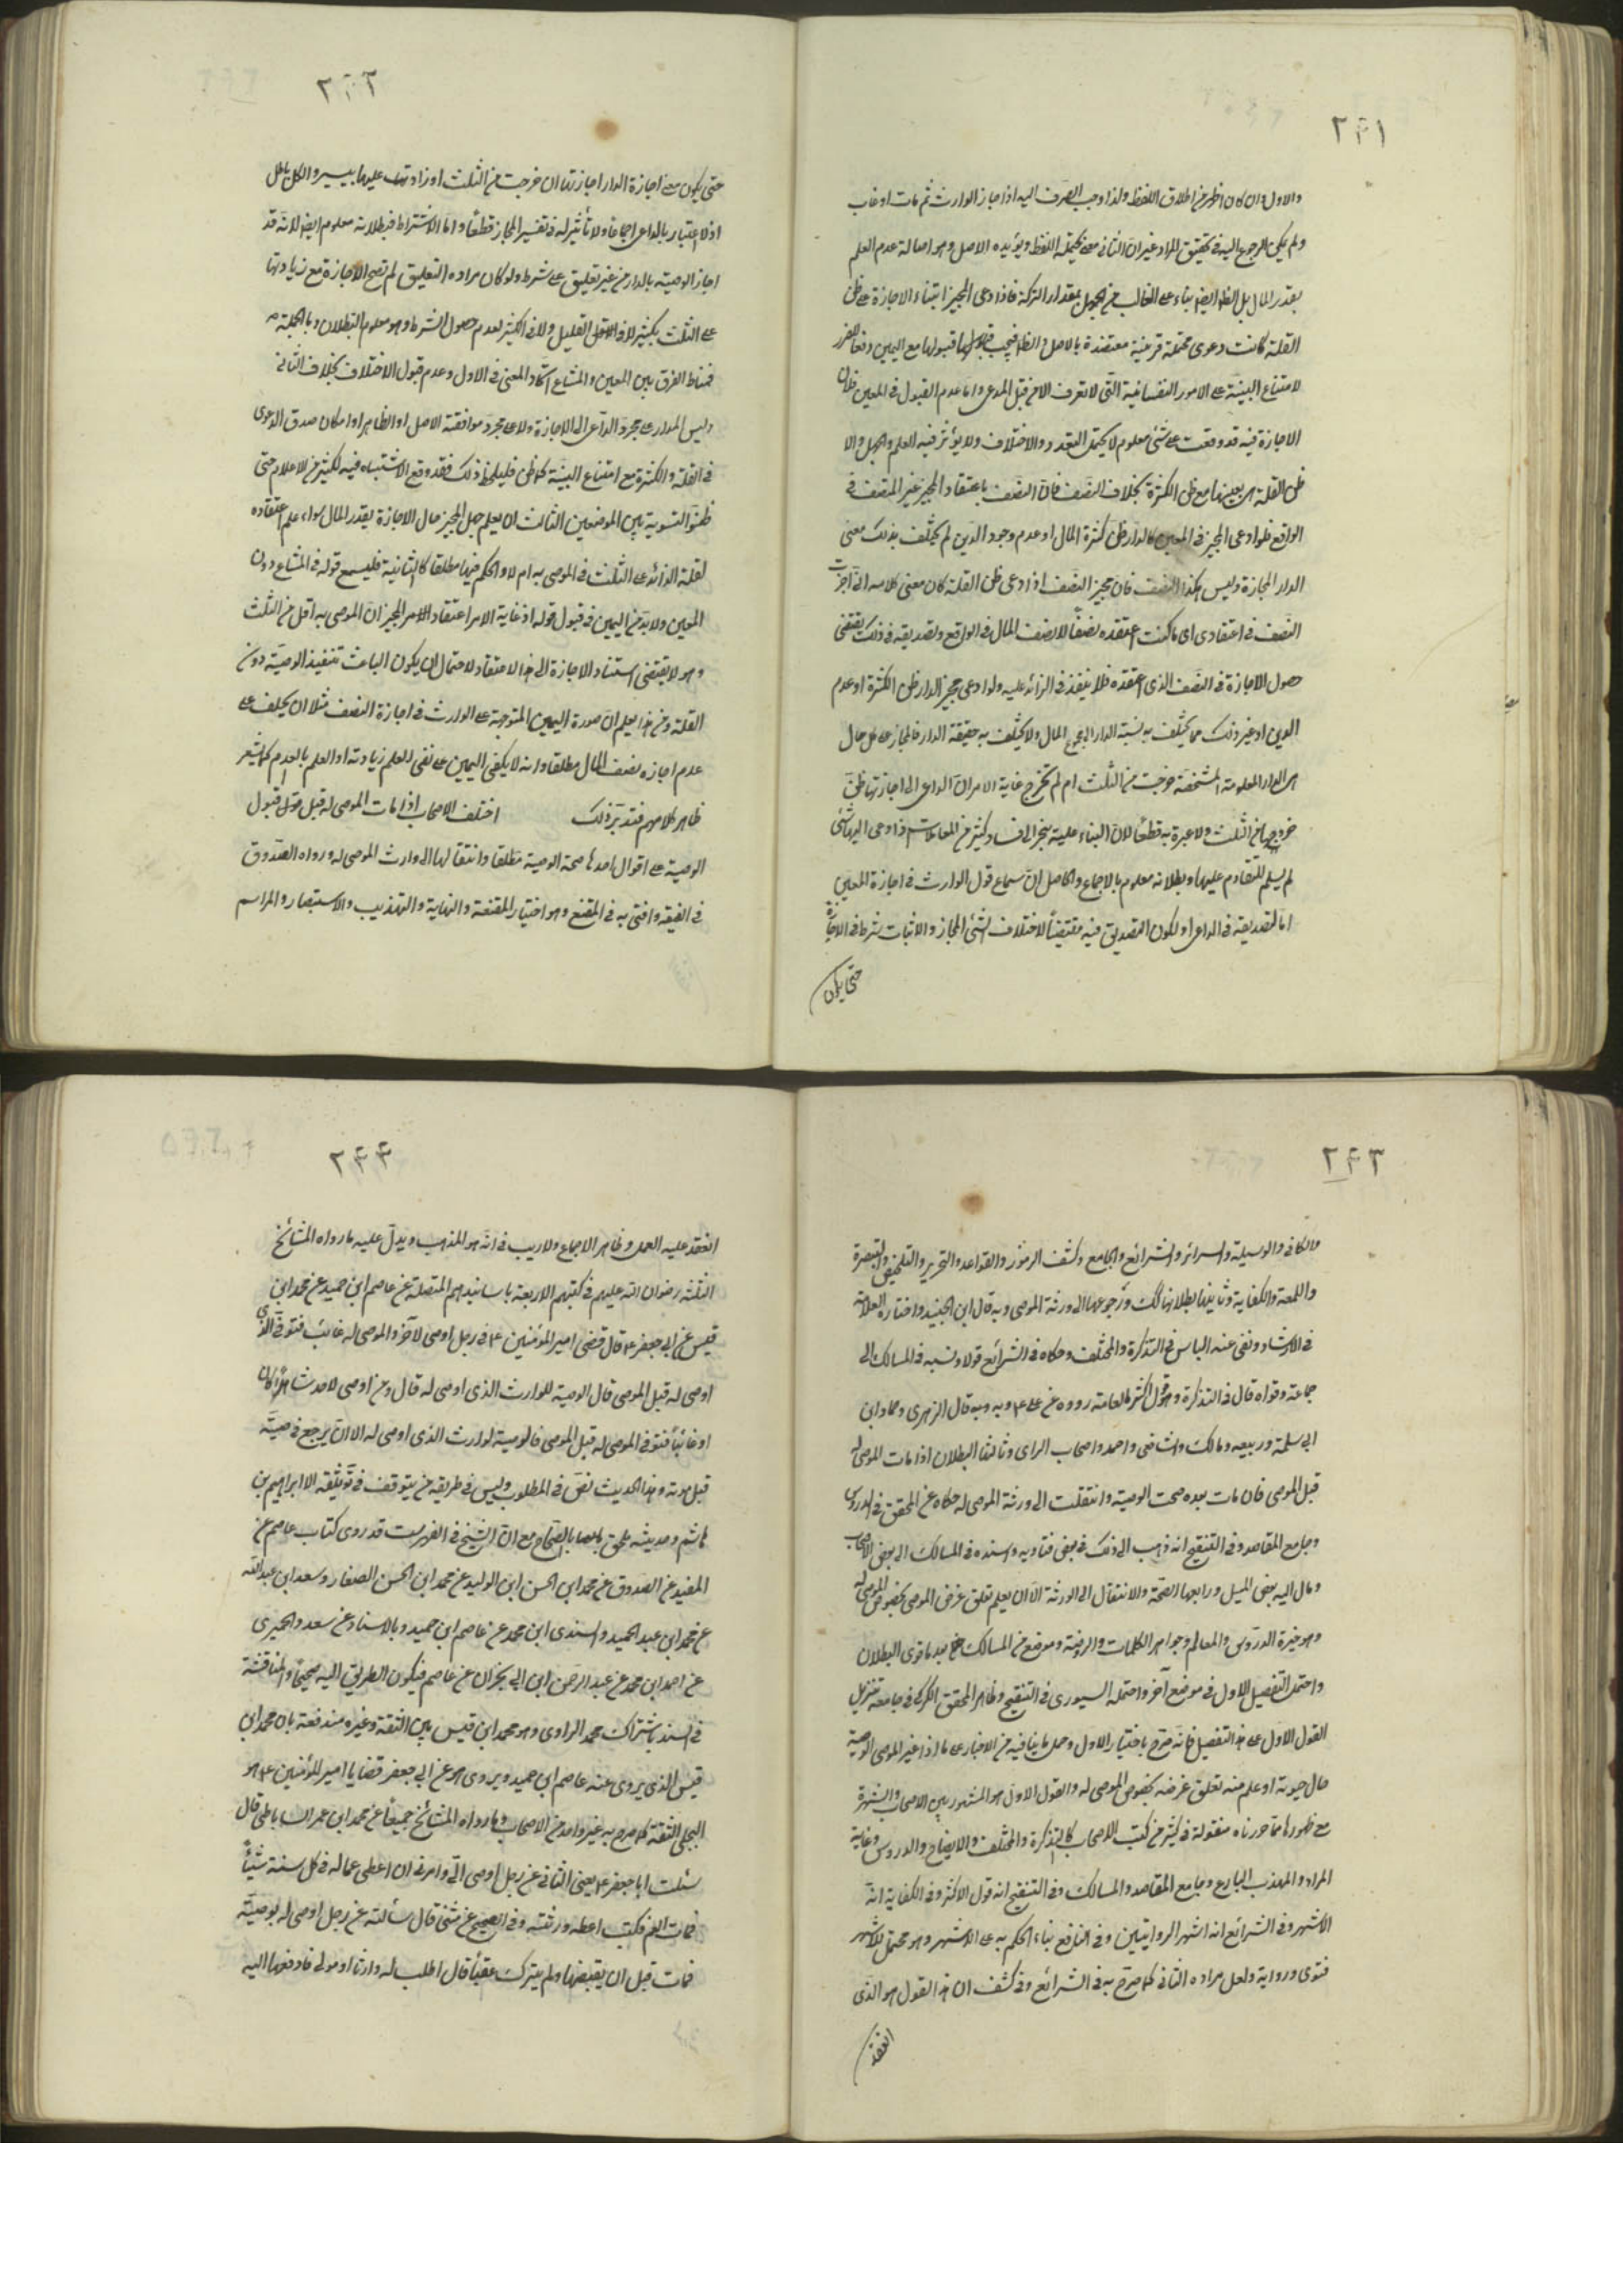 ٢٤١
والاول وان كان اظهر من اطلاق اللفظ ولذا وجب الصرف اليه اذا اجاز الوارث ثم مات او غاب
ولم يكن الرجوع اليه في تحقيق المراد غير ان الثاني مما يحتمله اللفظ ويؤيده الاصل وهو اصالة عدم العلم
بقدر المال بل الظ ايضا بناء على الغالب من الجهل بمقدار التركة فاذا ادعى المجيز ابتناء الاجازة على ظن
القلة كانت دعوى محتملة قرينة معتضدة بالاصل والظ فيجب قبولها مع اليمين دفعا للضرر
لامتناع البينة على الامور النفسانية التي لا تعرف الا من قبل المدعي واما عدم القبول في المعين فلان
الاجازة فيه قد وقعت على شئ معلوم لا يحتمل التعدد والاختلاف ولا يؤثر فيه العلم والجهل والا
ظن القلة بعينها مع ظن الكثرة بخلاف النصف فان النصف باعتقاد المجيز غير النصف في
الواقع فلو ادعى المجيز في المعين كالدار ظن كثرة المال او عدم وجود الدين لم يختلف بذلك معنى
الدار المجازة وليس هكذا النصف فان مجيز النصف اذا ادعى ظن القلة كان معنى كلامه انى اجزت
النصف في اعتقادي اى ما كنت اعتقده نصفا لا نصف المال في الواقع وتصديقه في ذلك يقتضى
حصول الاجازة في النصف الذى اعتقده فلا ينفذ في الزائد عليه ولو ادعى مجيز الدار ظن الكثرة او عدم
الدين او غير ذلك مما يختلف به نسبة الدار الى مجموع المال ولا يختلف به حقيقة الدار فالمجاز على كل حال
هى الدار المعلومة المشخصة خرجت من الثلث ام لم تخرج غاية الامر ان الداعى الى اجازتها ظن
خروجها من الثلث ولا عبرة به قطعا لان البناء عليه ينجر الى فساد كثير من المعاملات اذا دعى اليها شئ
لم يسلم للمتقادم عليها وبطلانه معلوم بالاجماع والحاصل ان سماع قول الوارث في اجازة المعين
اما لتصديقه في الداعى او لكون التصديق فيه مقتضيا لاختلاف الشئ المجاز والاثبات شرط في الاجازة
حتى يكون
٢٤٢
حتى يكون معنى اجازة الدار اجازتها ان خرجت من الثلث او زادت عليها بيسير والكل باطل
اذ لا اعتبار بالداعى اجماعا ولا تأثير له في تغيير المجاز قطعا واما الاشتراط فبطلانه معلوم ايضا لانه قد
اجاز الوصية بالدار من غير تعليق على شرط ولو كان مراده التعليق لم تصح الاجازة مع زيادتها
على الثلث بكثير لا في القليل ولا في الكثير لعدم حصول الشرط وهو معلوم البطلان وبالجملة
فمناط الفرق بين المعين والمشاع اتحاد المعنى في الاول وعدم قبول الاختلاف بخلاف الثاني
وليس المدار على مجرد الداعى الى الاجازة ولا على مجرد موافقة الاصل او الظاهر او امكان صدق الدعوى
في القلة والكثرة مع امتناع البينة كما ظن فليلحظ ذلك فقد وقع الاشتباه فيه لكثير من الاعلام حتى
ظنوا التسوية بين الموضعين الثالث ان يعلم جهل المجيز حال الاجازة بقدر المال سواء علم اعتقاده
لقلة الزائد على الثلث في الموصى به ام لا والحكم فيها مطلقا كالثانية فليسمع قوله في المشاع دون
المعين ولا بد من اليمين في قبول قوله اذ غاية الامر اعتقاد الامر المجيز ان الموصى به اقل من الثلث
وهو لا يقتضى استناد الاجازة الى هذا الاعتقاد لاحتمال ان يكون الباعث تنفيذ الوصية دون
القلة ومن هذا يعلم ان صورة اليمين المتوجهة على الوارث في اجازة النصف مثلا ان يحلف على
عدم اجازة نصف المال مطلقا وانه لا يكفى اليمين على نفى العلم زيادته او العلم بالعدم كما يشعر
ظاهر كلامهم فتدبر ذلك اختلف الاصحاب اذا مات الموصى له قبل قبول
الوصية على اقوال احدها صحة الوصية مطلقا وانتقالها الى وارث الموصى له ورواه الصدوق
في الفقيه وافتى به في المقنع وهو اختيار المقنعة والنهاية والتهذيب والاستبصار والمراسم
٢٤٣
والكافي والوسيلة والسرائر والشرائع والجامع وكشف الرموز والقواعد والتحرير والتلخيص والتبصرة
واللمعة والكفاية وثانيها بطلانها كك ورجوعها الى ورثة الموصى وبه قال ابن الجنيد واختاره العلامة
في الارشاد ونفى عنه الباس في التذكرة والمختلف وحكاه في الشرائع قولا ونسبه في المسالك الى
جماعة وقواه قال في التذكرة وهو قول اكثر العامة رووه عن على ع وبه قال الزهرى وحماد ابن
ابى سلمة وربيعه ومالك والشافعى واحمد واصحاب الراى وثالثها البطلان اذا مات الموصى له
قبل الموصى فان مات بعده صحت الوصية وانتقلت الى ورثة الموصى له حكاه عن المحقق في الدروس
وجامع المقاصد وفي التنقيح انه ذهب الى ذلك في بعض فتاويه واسنده في المسالك الى بعض الاصحاب
ومال اليه بعض الميل ورابعها الصحة والانتقال الى الورثة الا ان يعلم تعلق غرض الموصى بخصوص الموصى له
وهو خيرة الدروس والمعالم وجواهر الكلمات والروضة وموضع من المسالك بعد ما قوى البطلان
واحتمل التفصيل الاول في موضع آخر واحتمله السيورى في التنقيح وظاهر المحقق الكركى في جامعه تنزيل
القول الاول على هذا التفصيل فانه صرح باختيار الاول وحمل ما ينافيه من الاخبار على ما اذا غير الموصى الوصية
حال حيوته او علم منه تعلق غرضه بخصوص الموصى له والقول الاول هو المشهور بين الاصحاب والشهرة
مع ظهورها مما حررناه منقولة في كثير من كتب الاصحاب كالتذكرة والمختلف والايضاح والدروس وغاية
المراد والمهذب البارع وجامع المقاصد والمسالك وفي التنقيح انه قول الاكثر وفي الكفاية انه
الاشهر وفي الشرائع انه اشهر الروايتين وفي النافع بناء الحكم به على الاشهر وهو محتمل للاشهر
فتوى ورواية ولعل مراده الثاني كما صرح به في الشرائع وفي كشف ان هذا القول هو الذى
انعقد
٢٤٤
انعقد عليه العمل وظاهر الاجماع ولا ريب في انه هو المذهب ويدل عليه ما رواه المشائخ
الثلثة رضوان الله عليهم في كتبهم الاربعة باسانيدهم المتصلة عن عاصم ابن حميد عن محمد ابن
قيس عن ابى جعفر ع قال قضى امير المؤمنين ع في رجل اوصى لآخر والموصى له غائب فتوفى الذى
اوصى له قبل الموصى قال الوصية للوارث الذى اوصى له قال ومن اوصى لاحد شاهدا كان
او غائبا فتوفى الموصى له قبل الموصى فالوصية لوارث الذى اوصى له الا ان يرجع في وصيته
قبل موته وهذا الحديث نص في المطلوب وليس في طريقه من يتوقف في توثيقه الا ابراهيم بن
هاشم وحديثه ملحق بالصحاح مع ان الشيخ في الفهرست قد روى كتاب عاصم عن
المفيد عن الصدوق عن محمد ابن الحسن ابن الوليد عن محمد ابن الحسن الصفار وسعد ابن عبد الله
عن محمد ابن عبد الحميد والسندى ابن محمد عن عاصم ابن حميد وبالاسناد عن سعد والحميرى
عن احمد ابن محمد عن عبد الرحمن ابن ابى نجران عن عاصم فيكون الطريق اليه صحيحا والمناقشة
في السند باشتراك محمد الراوى وهو محمد ابن قيس بين الثقة وغيره مندفعة بان محمد ابن
قيس الذى يروى عنه عاصم ابن حميد ويروى هو عن ابى جعفر قضايا امير المؤمنين ع هو
البجلى الثقة كما صرح به غير واحد من الاصحاب وما رواه المشائخ جميعا عن محمد ابن عمر الساباطى قال
سئلت ابا جعفر ع يعنى الثاني عن رجل اوصى الى وامرنى ان اعطى عما له في كل سنة شيئا
فمات العم فكتب اعطه ورثته وفي الصحيح عن مثنى قال سألته عن رجل اوصى له بوصية
فمات قبل ان يقبضها ولم يترك عقبا قال اطلب له وارثا او مولى فادفعها اليه